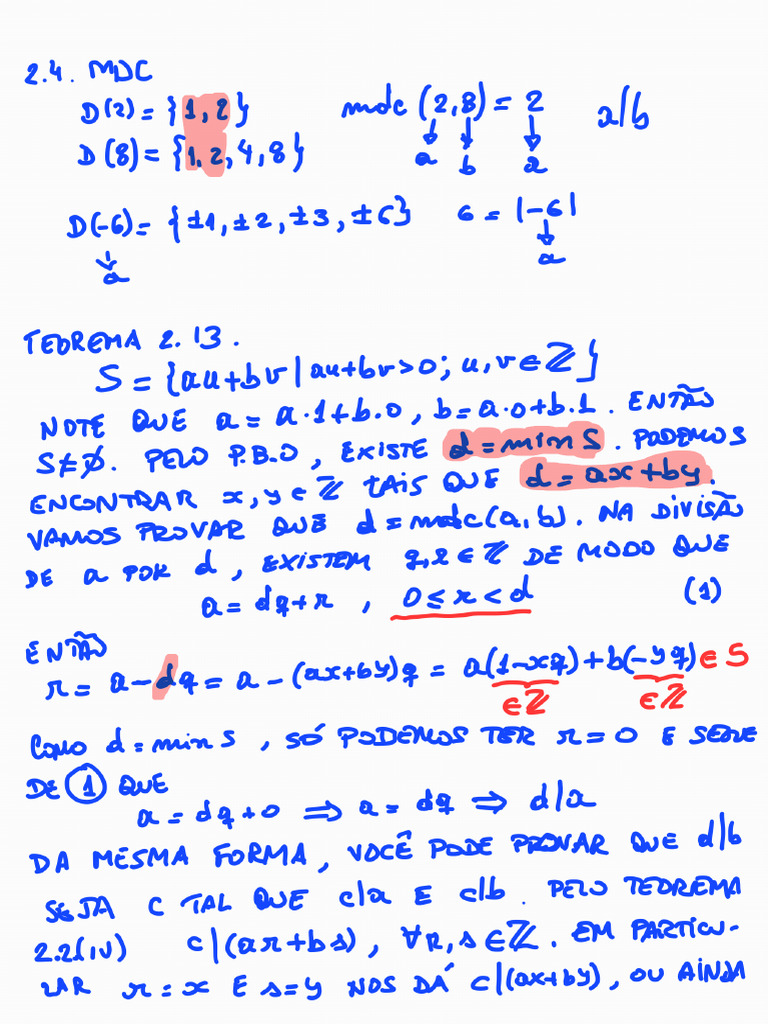 2.4. MDC
D(2) = {1, 2}
mdc (2,8) = 2
a|b
D(8) = {1, 2, 4, 8}
a b a
D(-6) = {±1, ±2, ±3, ±6}
6 = |-6|
a
a
TEOREMA 2.13.
S = {au+bv | au+bv>0; u,v ∈ ℤ}
NOTE QUE a = a·1+b·0, b=a·0+b·1. ENTÃO
S≠∅. PELO P.B.O, EXISTE d=min S. PODEMOS
ENCONTRAR x,y ∈ ℤ TAIS QUE d=ax+by.
VAMOS PROVAR QUE d=mdc(a,b). NA DIVISÃO
DE a POR d, EXISTEM q,r ∈ ℤ DE MODO QUE
a = dq+r, 0 ≤ r < d (1)
ENTÃO
r = a-dq = a-(ax+by)q = a(1-xq)+b(-yq) ∈ S
∈ℤ ∈ℤ
COMO d=min S, SÓ PODEMOS TER r=0 E SEGUE
DE 1 QUE
a = dq+0 ⟹ a = dq ⟹ d|a
DA MESMA FORMA, VOCÊ PODE PROVAR QUE d|b
SEJA C TAL QUE c|a E c|b. PELO TEOREMA
2.2(iv) c|(ar+bs), ∀r,s ∈ ℤ. EM PARTICU-
LAR r=x E s=y NOS DÁ c|(ax+by), OU AINDA